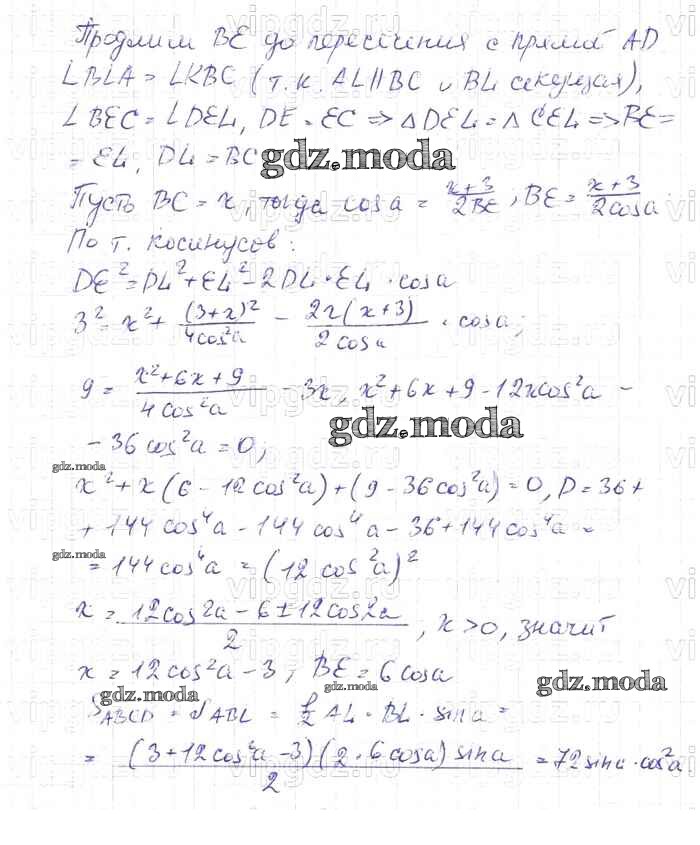 Продлим BE до пересечения с прямой AD
∠BLA = ∠KBC (т.к. AL||BC и BL секущая),
∠BEC = ∠DEL, DE = EC => ΔDEL = ΔCEL => BE =
= EL, DL = BC
gdz.moda
Пусть BC = x, тогда cos a = (x+3)/(2BE); BE = (x+3)/(2cos a)
По т. косинусов:
DE² = DL² + EL² - 2DL · EL · cos a
3² = x² + (3+x)²/(4cos²a) - 2x(x+3)/(2cos a) · cos a;
9 = (x²+6x+9)/(4cos²a) - 3x, x²+6x+9-12xcos²a -
- 36cos²a = 0;
gdz.moda
gdz.moda
x² + x(6-12cos²a) + (9-36cos²a) = 0, D = 36 +
+ 144cos⁴a - 144cos⁴a - 36 + 144cos⁴a =
gdz.moda
= 144cos⁴a = (12cos²a)²
x = (12cos²a - 6 ± 12cos2a)/2, x > 0, значит
x = 12cos²a - 3; BE = 6cos a
gdz.moda
gdz.moda
S ABCD = S ABL = 1/2 AL · BL · sin a =
= (3+12cos²a-3)(2·6cos a)sin a/2 = 72sin a · cos²a